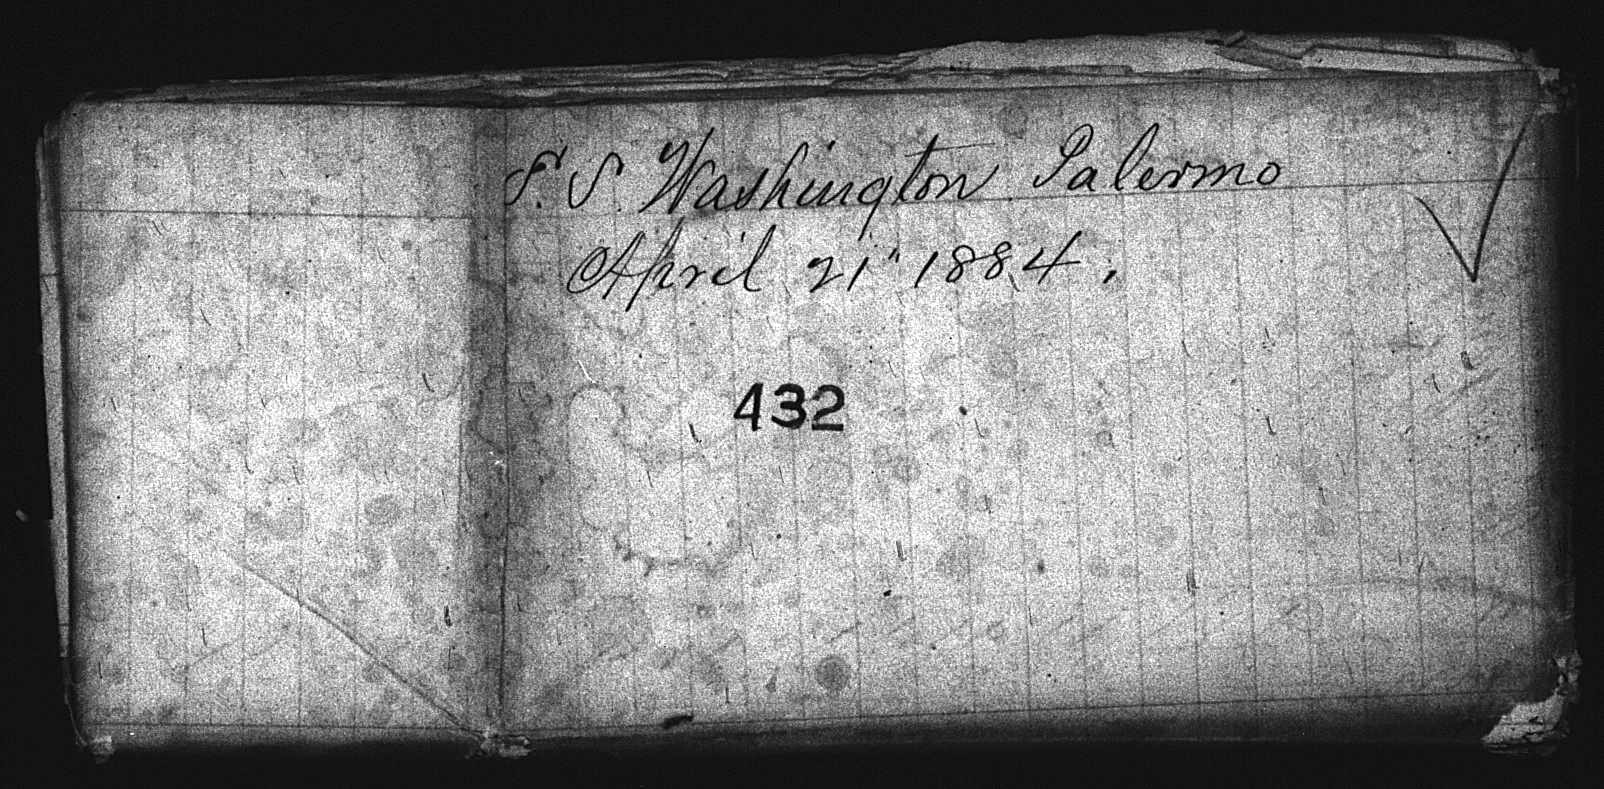 S. S. Washington Palermo
April 21" 1884.
432